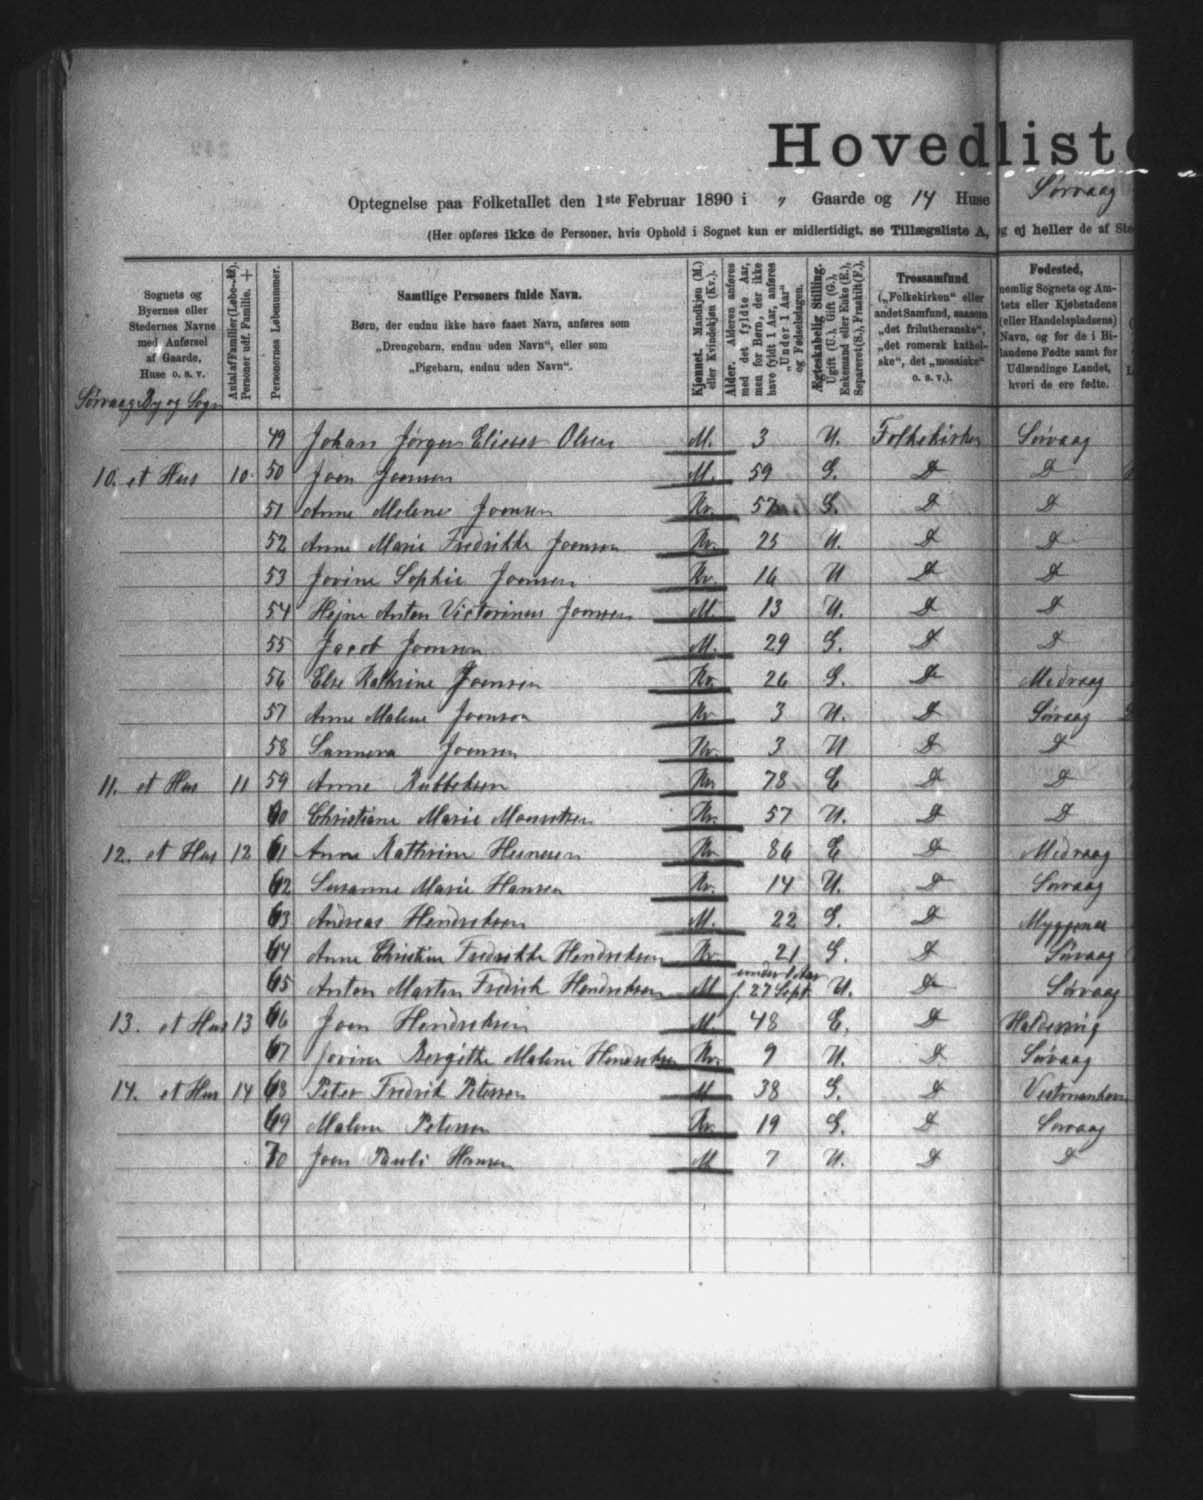 Hovedliste
Optegnelse paa Folketallet den 1ste Februar 1890 i „ Gaarde og 14 Huse Sørvaag
(Her opføres ikke de Personer, hvis Ophold i Sognet kun er midlertidigt, se Tillægsliste A, og ej heller de af
Sognets og Byernes eller Stedernes Navne med Anførsel af Gaarde, Huse o. s. v.
Antal af Familier
Personer udf. Familie. +
Personernes Løbenummer.
Samtlige Personers fulde Navn.
Børn, der endnu ikke have faaet Navn, anføres som
„Drengebarn, endnu uden Navn“, eller som
„Pigebarn, endnu uden Navn“.
Kjønnet. Mandkjøn (M.) eller Kvindekjøn (Kv.).
Alder. Alderen anføres med det fyldte Aar, men for Børn, der ikke have fyldt 1 Aar, anføres „Under 1 Aar“ og Fødselsdagen.
Ægteskabelig Stilling. Ugift (U.), Gift (G.), Enkemand eller Enke (E.), Separeret (S.), Fraskilt (F.).
Trossamfund („Folkekirken“ eller andet Samfund, saasom „det frilutheranske“, „det romersk katholske“, det „mosaiske“ o. s. v.).
Fødested, nemlig Sognets og Amtets eller Kjøbstadens (eller Handelspladsens) Navn, og for de i Bilandene Fødte samt for Udlændinge Landet, hvori de ere fødte.
Sørvaags By og Sogn
49 Johan Jørgen Elieser Olsen M. 3 U. Folkekirken Sørvaag
10. et Hus 10. 50 Joen Joensen M. 59 G. D D
51 Anne Malene Joensen Kv. 57 G. D D
52 Anne Marie Fredrikke Joensen Kv. 25 U. D D
53 Jovine Sophie Joensen Kv. 16 U D D
54 Hejne Anton Victorinus Joensen M. 13 U. D D
55 Jacob Joensen M. 29 G. D D
56 Else Kathrine Joensen Kv. 26 G. D Midvaag
57 Anne Malene Joensen Kv 3 U. D Sørvaag
58 Sannova Joensen Kv. 3 U D D
11. et Hus 11 59 Anne Kv 78 E D D
60 Christiane Marie Kv. 57 U. D D
12. et Hus 12 61 Anne Kathrine Heinesen Kv 86 E D Midvaag
62 Susanne Marie Hansen Kv. 14 U. D Sørvaag
63 Andreas Hendriksen M. 22 G. D Myggenæs
64 Anne Christine Fredrikke Hendriksen Kv. 21 G. D Sørvaag
65 Anton Martin Fredrik Hendriksen M under 1 Aar f. 27 Sept U. D Sørvaag
13. et Hus 13 66 Joen Hendriksen M. 48 E. D Haldersvig
67 Jovine Bergitte Malene Hendriksen Kv. 9 U. D Sørvaag
14. et Hus 14 68 Peter Fredrik Petersen M 38 G. D Vestmanhavn
69 Malene Petersen Kv. 19 G. D Sørvaag
70 Joen Pauli Hansen M 7 U. D D